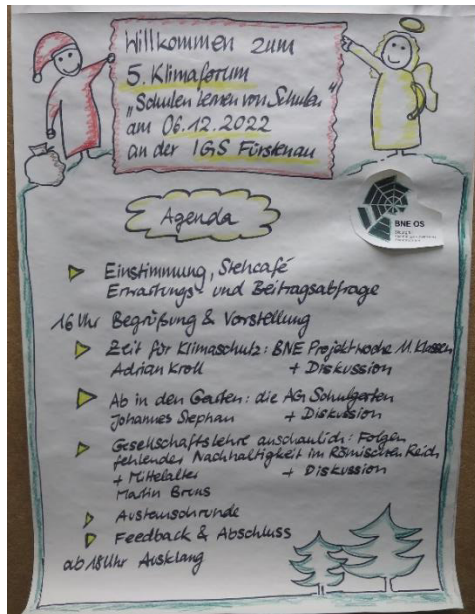 Willkommen zum
5. Klimaforum
„Schulen lernen von Schulen"
am 06.12.2022
an der IGS Fürstenau
Agenda
BNE OS
Einstimmung, Stehcafé
Erwartungs- und Beitragsabfrage
16 Uhr Begrüßung & Vorstellung
Zeit für Klimaschutz: BNE Projektwoche 11. Klassen
Adrian Kroll + Diskussion
Ab in den Garten: die AG Schulgarten
Johannes Stephan + Diskussion
Gesellschaftslehre anschaulich: Folgen
fehlender Nachhaltigkeit im Römischen Reich
+ Mittelalter + Diskussion
Martin Bruns
Austauschrunde
Feedback & Abschluss
ab 18 Uhr Ausklang